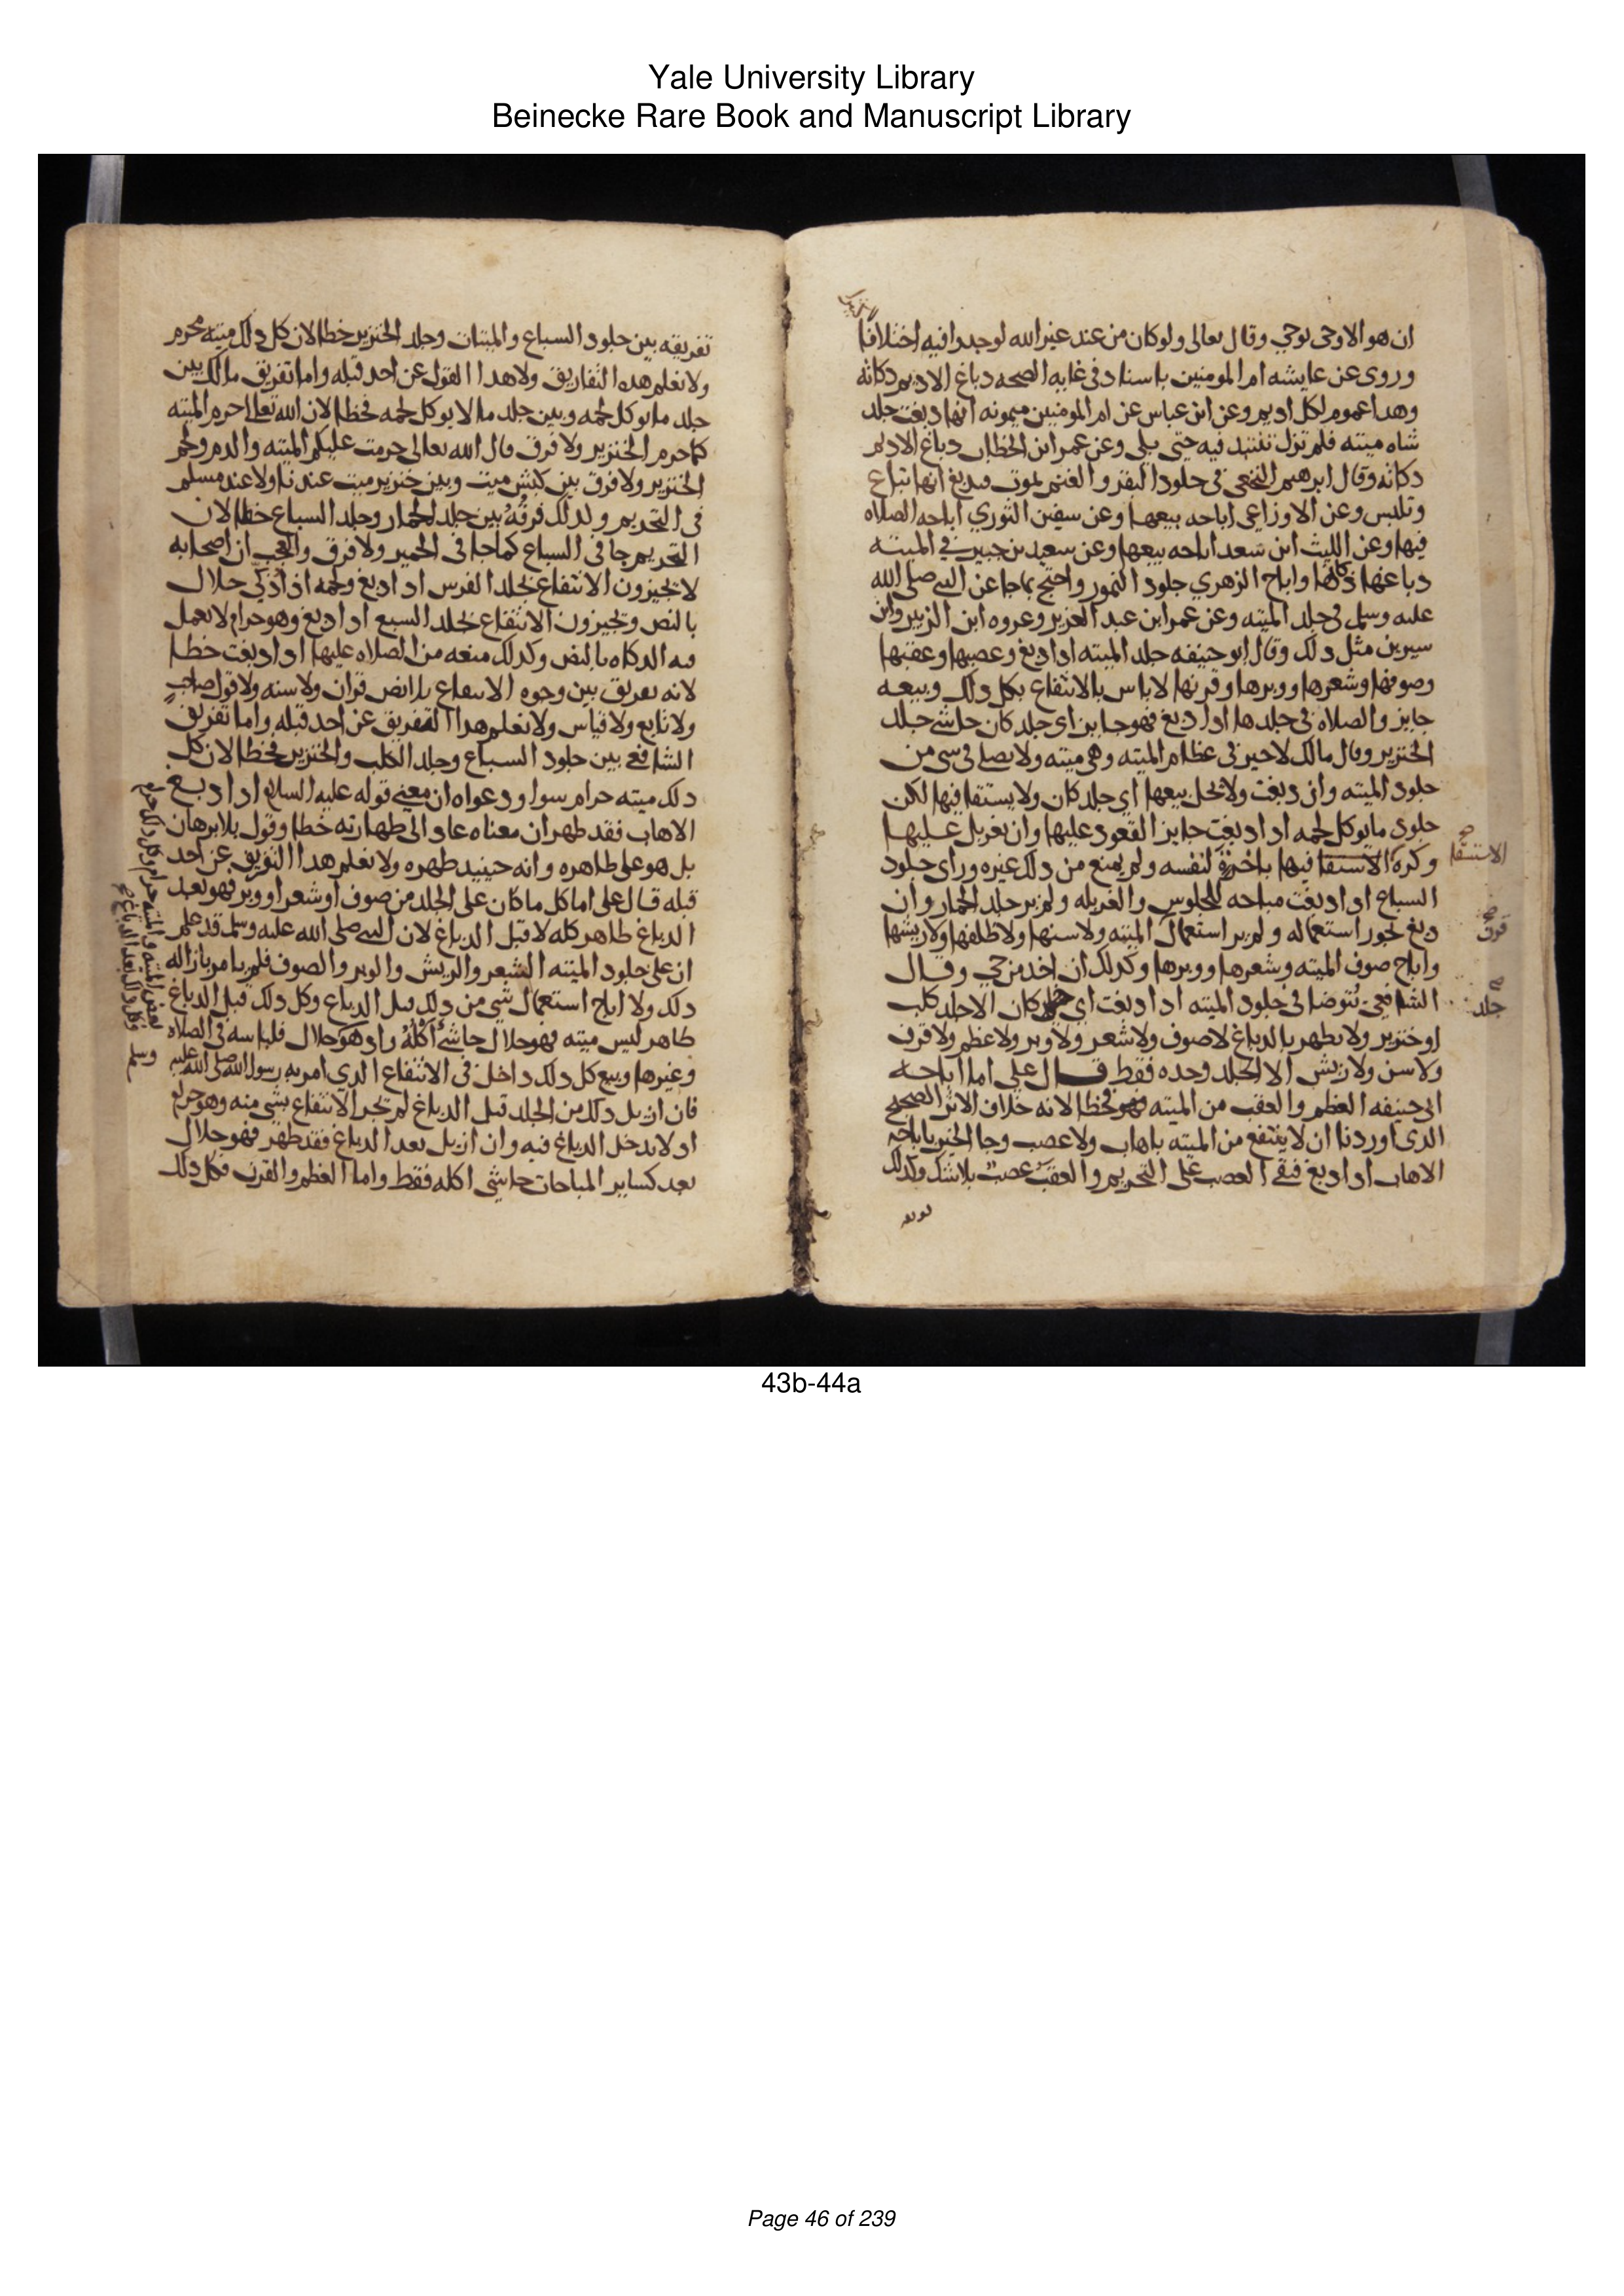 Yale University Library
Beinecke Rare Book and Manuscript Library
ان هو الا وحى يوحي وقال تعالى ولو كان من عند غير الله لوجدوا فيه اختلافا
وروى عن عايشه ام المومنين باسناد في غايه الصحه دباغ الاديم دكاته
وهدا عموم لكل اديم وعن ابن عباس عن ام المومنين ميمونه انها دبغت جلد
شاه ميته فلم تزل تنتبد فيه حتى بلى وعن عمر ابن الخطاب دباغ الاديم
دكاته وقال ابرهيم النخعي في جلود البقر والغنم تموت فتدبغ انها تباع
وتلبس وعن الاوزاعي اباحه بيعها وعن سفين الثوري اباحه الصلاه
فيها وعن الليث ابن سعد اباحه بيعها وعن سعيد بن جبير في الميته
دباغها ذكاتها واباح الزهري جلود النمور واحتج بما جا عن النبي صلى الله
عليه وسلم في جلد الميته وعن عمر ابن عبد العزيز وعروه ابن الزبير وابن
سيرين مثل دلك وقال ابو حنيفه جلد الميته ادا دبغ وعصبها وعقبها
وصوفها وشعرها ووبرها وقرنها لا باس بالانتفاع بكل دلك وبيعه
جايز والصلاه في جلدها ادا دبغ فهو جايز اي جلد كان حاشى جلد
الخنزير وقال مالك لا خير في عظام الميته وهي ميته ولا يصلى في شي من
جلود الميته وان دبغت ولا يحل بيعها اي جلد كان ولا يستقا فيها لكن
جلود ما يوكل لحمه ادا دبغت جايز القعود عليها وان يغربل عليها
وكره الاستسقا فيها باخرة لنفسه ولم يمنع من دلك غيره وراى جلود
الاستسقا صح
السباع ادا دبغت مباحه للجلوس والغربله ولم ير جلد الحمار وان
دبغ يجوز استعماله ولم ير استعمال الميته ولا سنها ولا ظلفها ولا ريشها
قرن صح
واباح صوف الميته وشعرها ووبرها وكدلك ان اخد من حي وقال
الشافعي يتوضا في جلود الميته ادا دبغت اي كان الا جلد كلب
جلد صح
او خنزير ولا يطهر بالدباغ لا صوف ولا شعر ولا وبر ولا عظم ولا قرن
ولا سن ولا ريش الا الجلد وحده فقط قال علي اما اباحه
ابي حنيفه العظم والعقب من الميته فهو فخطا لانه خلاف الاثر الصحيح
الدى اوردنا ان لا ينتفع من الميته باهاب ولا عصب وجا الخبر باباحه
الاهاب ادا دبغ فبقي العصب على التحريم والعقب عصب بلا شك وكدلك
تفريقه بين جلود السباع والميتات وجلد الخنزير خطا لان كل دلك ميته محرم
ولا نعلم هده التفاريق ولا هدا القول عن احد قبله واما تفريق مالك بين
جلد ما يوكل لحمه وبين جلد ما لا يوكل لحمه فخطا لان الله تعالى حرم الميته
كما حرم الخنزير ولا فرق قال الله تعالى حرمت عليكم الميته والدم ولحم
الخنزير ولا فرق بين كبش ميت وبين خنزير ميت عندنا ولا عند مسلم
في التحريم وكدلك فرقه بين جلد الحمار وجلد السباع خطا لان
التحريم جا في السباع كما جا في الحمير ولا فرق والعجب ان اصحابه
لا يجيزون الانتفاع بجلد الفرس ادا دبغ ولحمه اذا ذكي حلال
بالنص ويجيزون الانتفاع بجلد السبع ادا دبغ وهو حرام لا تعمل
فيه الدكاه بالنص وكدلك منعه من الصلاه عليها ادا دبغت خطا
لانه تفريق بين وجوه الانتفاع بلا نص قران ولا سنه ولا قول صاحب
ولا تابع ولا قياس ولا نعلم هدا التفريق عن احد قبله واما تفريق
الشافعي بين جلود السباع وجلد الكلب والخنزير فخطا لان كل
دلك ميته حرام سوا ودعواه ان معنى قوله عليه السلام ادا دبغ
الاهاب فقد طهر ان معناه عاد الى طهارته خطا وقول بلا برهان
بل هو على ظاهره وانه حينيد طهره ولا نعلم هدا التفريق عن احد
قبله قال علي اما كل ما كان على الجلد من صوف او شعر او وبر فهو بعد
الدباغ طاهر كله لا قبل الدباغ لان النبي صلى الله عليه وسلم قد علم
ان على جلود الميته الشعر والريش والوبر والصوف فلم يامر بازاله
دلك ولا اباح استعمال شي من دلك قبل الدباغ وكل دلك قبل الدباغ
بعض الميته والميته حرام وكل دلك حرام
وكل دلك بعد الدباغ صح
طاهر ليس ميته فهو حلال حاشى اكله واد هو حلال فلباسه في الصلاه
وغيرها وبيع كل دلك داخل في الانتفاع الدي امر به رسول الله صلى الله عليه
وسلم
فان ازيل دلك من الجلد قبل الدباغ لم يجز الانتفاع بشي منه وهو حرام
اد لا يدخل الدباغ فيه وان ازيل بعد الدباغ فقد طهر فهو حلال
بعد كساير المباحات حاشى اكله فقط واما العظم والقرن فكل دلك
43b-44a
Page 46 of 239